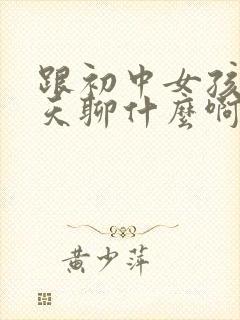 跟初中女孩
天聊什麼啊
黄少萍